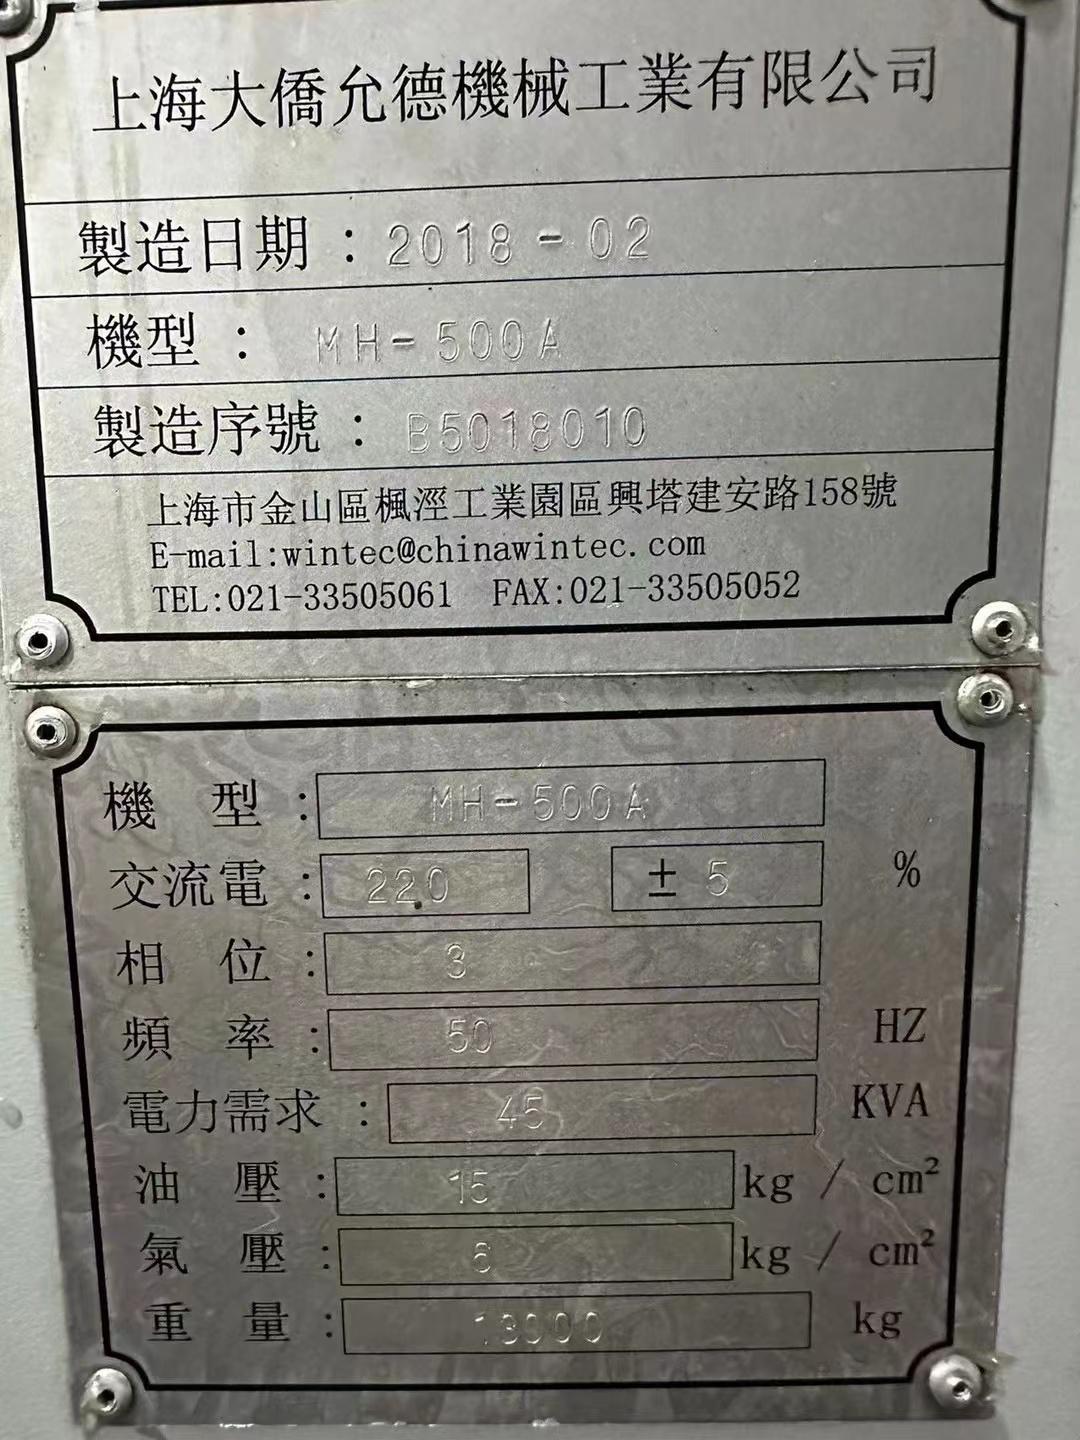 上海大僑允德機械工業有限公司
製造日期：2018-02
機型： MH-500A
製造序號： B5018010
上海市金山區楓涇工業園區興塔建安路158號
E-mail:wintec@chinawintec.com
TEL:021-33505061 FAX:021-33505052
機 型： MH-500A
交流電： 220 ± 5 %
相 位： 3
頻 率： 50 HZ
電力需求： 45 KVA
油 壓： 15 kg / cm²
氣 壓： 6 kg / cm²
重 量： 13000 kg